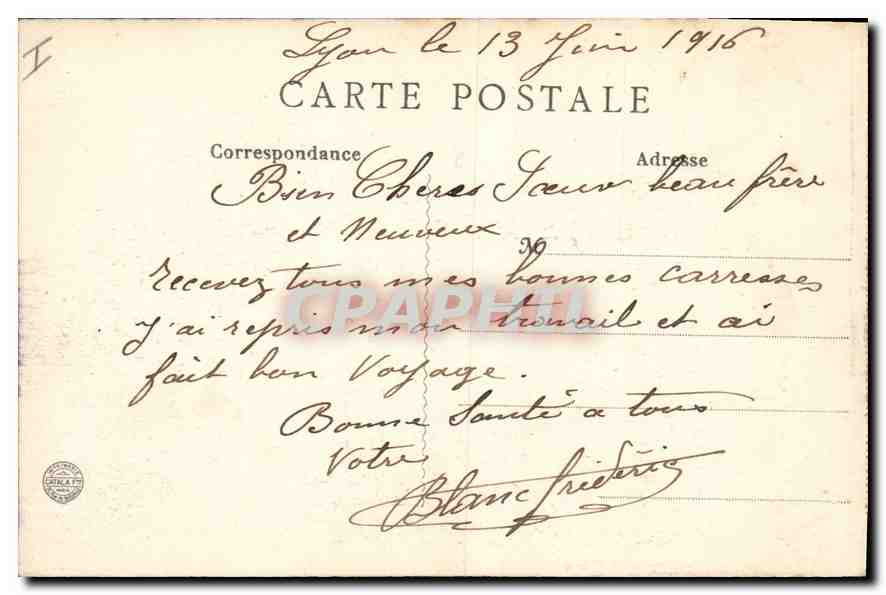 I
Lyon le 13 Juin 1916
CARTE POSTALE
Correspondance
Adresse
Bien Cheres Soeur beau frère
et Neuveux
M
recevez tous mes bonnes carresses
J'ai repris mon travail et ai
fait bon Voyage.
Bonne Santé a tous
Votre
Blanc fréderic
CPAPHIL
CATALA Fres